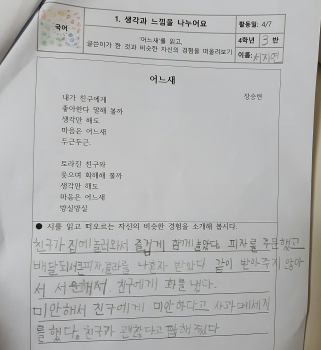 국어
1. 생각과 느낌을 나누어요
활동일: 4/7
'어느새'를 읽고,
글쓴이가 한 것과 비슷한 자신의 경험을 떠올려보기
4학년 3 반
이름:
어느새
장승련
내가 친구에게
좋아한다 말해 볼까
생각만 해도
마음은 어느새
두근두근.
토라진 친구와
웃으며 화해해 볼까
생각만 해도
마음은 어느새
방실방실
● 시를 읽고 떠오르는 자신의 비슷한 경험을 소개해 봅시다.
친구가 집에 놀러와서 즐겁게 함께 놀았다. 피자를 주문했고
배달되어온 피자, 콜라를 나 혼자 받았다 같이 받아주지 않아
서 서운해서 친구에게 화를 냈다.
미안해서 친구에게 미안하다고 사과 메세지
를 했다. 친구가 괜찮다고 답해 줬다